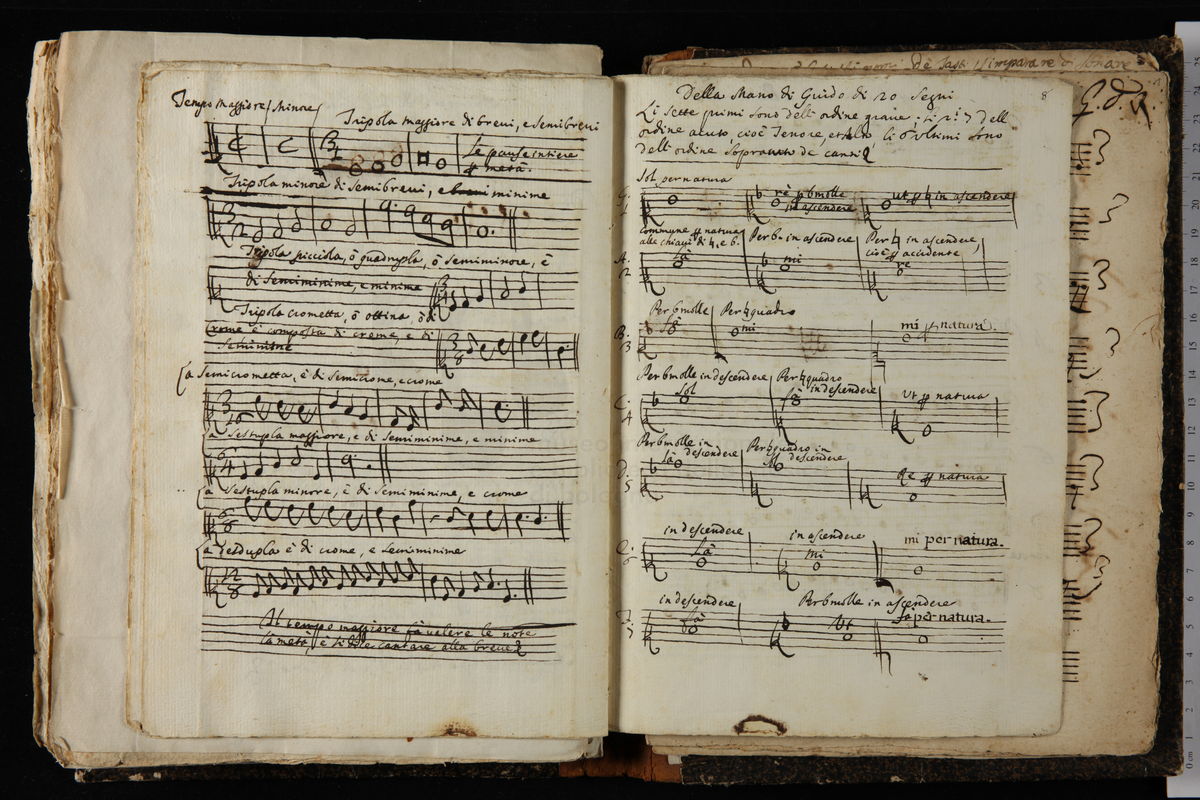 Tempo Maggiore / Minore /
Tripola maggiore di brevi, e semibrevi
Le pause intiere
metà.
Tripola minore di Semibrevi, e minime
Tripola picciola, ò quadrupla, ò Semiminore, è
di Semiminime, e minime
Tripola crometta, ò ottina, ò di
crome è composta di crome, e di
Semiminime
a Semicrometta, è di Semicrome, e crome
a Sestupla maggiore, e di Semiminime, e minime
a Sestupla minore, è di Semiminime, e crome
è di crome, e Semiminime
Il tempo maggiore fà valere le note
la metà, e si cantare alla breve
8
Della Mano di Guido di 20 Segni
Li Sette primi sono dell'ordine grave; li 2.i 7 dell
ordine acuto cioè Tenore, et Alto li 6 ultimi sono
dell'ordine Sopracuto de canti
Sol per natura
G. 1
rè p b molle
in ascendere
ut p ♮ in ascendere
commune p natura
alle chiavi di ♮, e b.
Per b. in ascendere
Per ♮ in ascendere
cioè p accidente
A. 2
Là
mi
re
Per b molle
Per ♮ quadro
B. 3
fà
mi
mi p natura.
Per b molle in descendere
Per ♮ quadro
in descendere
Ut p natura
C. 4
Sol
fà
Per b molle in
descendere
Per ♮ quadro in
descendere
D. 5
Là
Re p natura
in descendere
in ascendere
mi per natura.
Là
mi
in descendere
Per b molle in ascendere
fa per natura.
Là
Ut